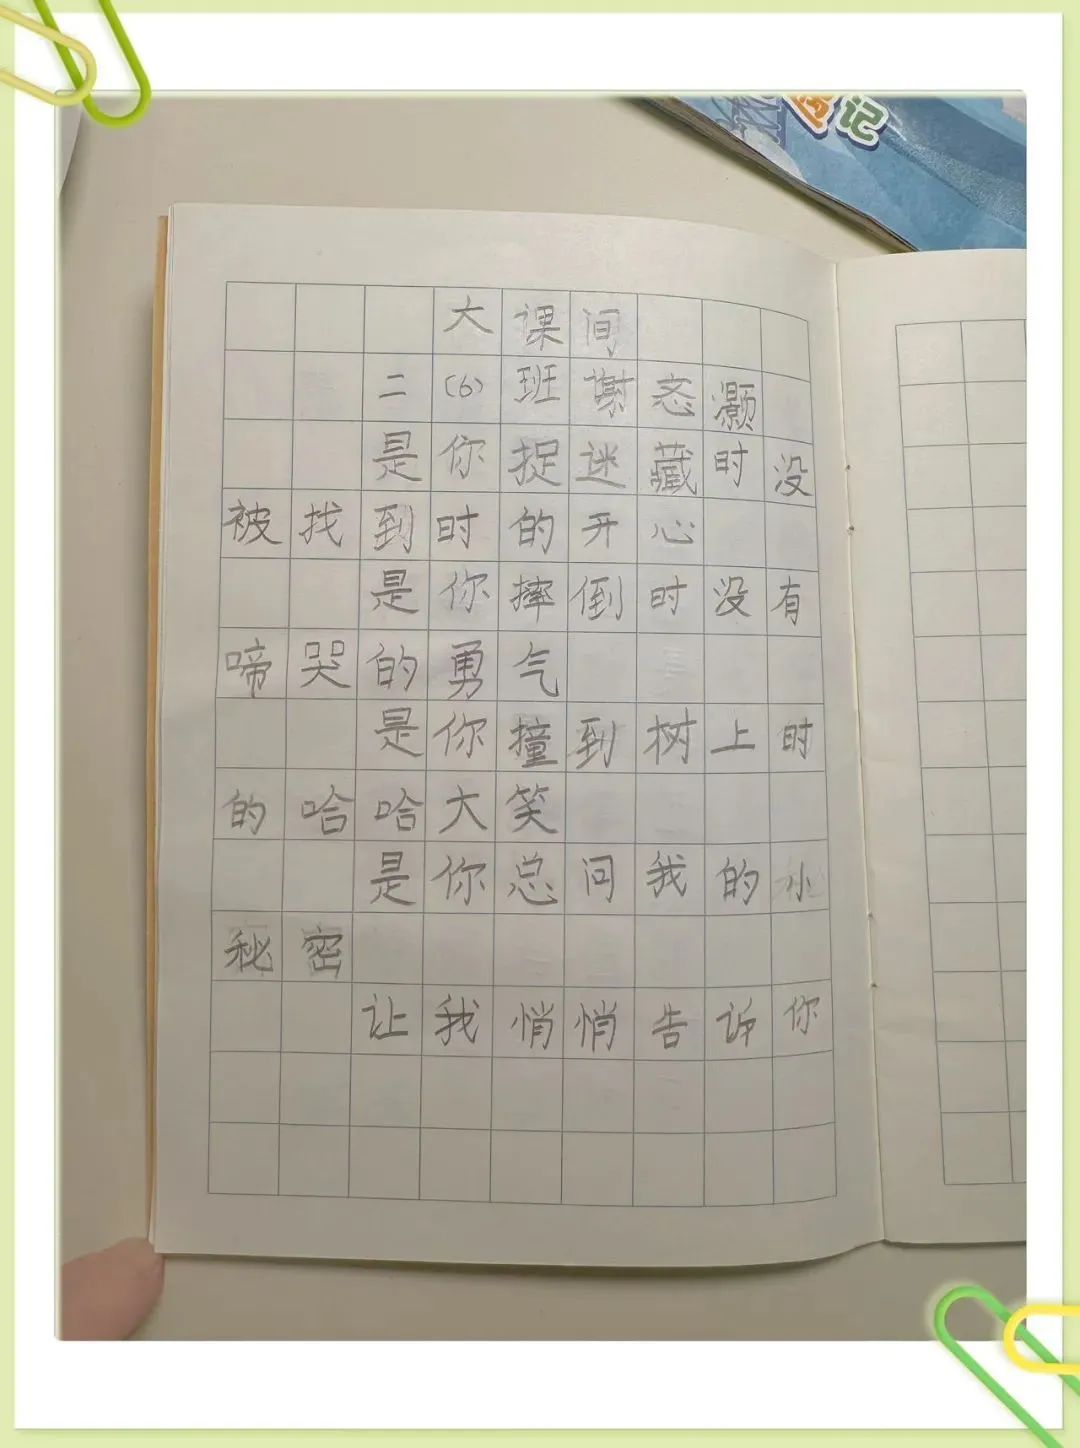 记
大课间
二(6)班谢忞灏
是你捉迷藏时没
被找到时的开心
是你摔倒时没有
啼哭的勇气
是你撞到树上时
的哈哈大笑
是你总问我的小
秘密
让我悄悄告诉你